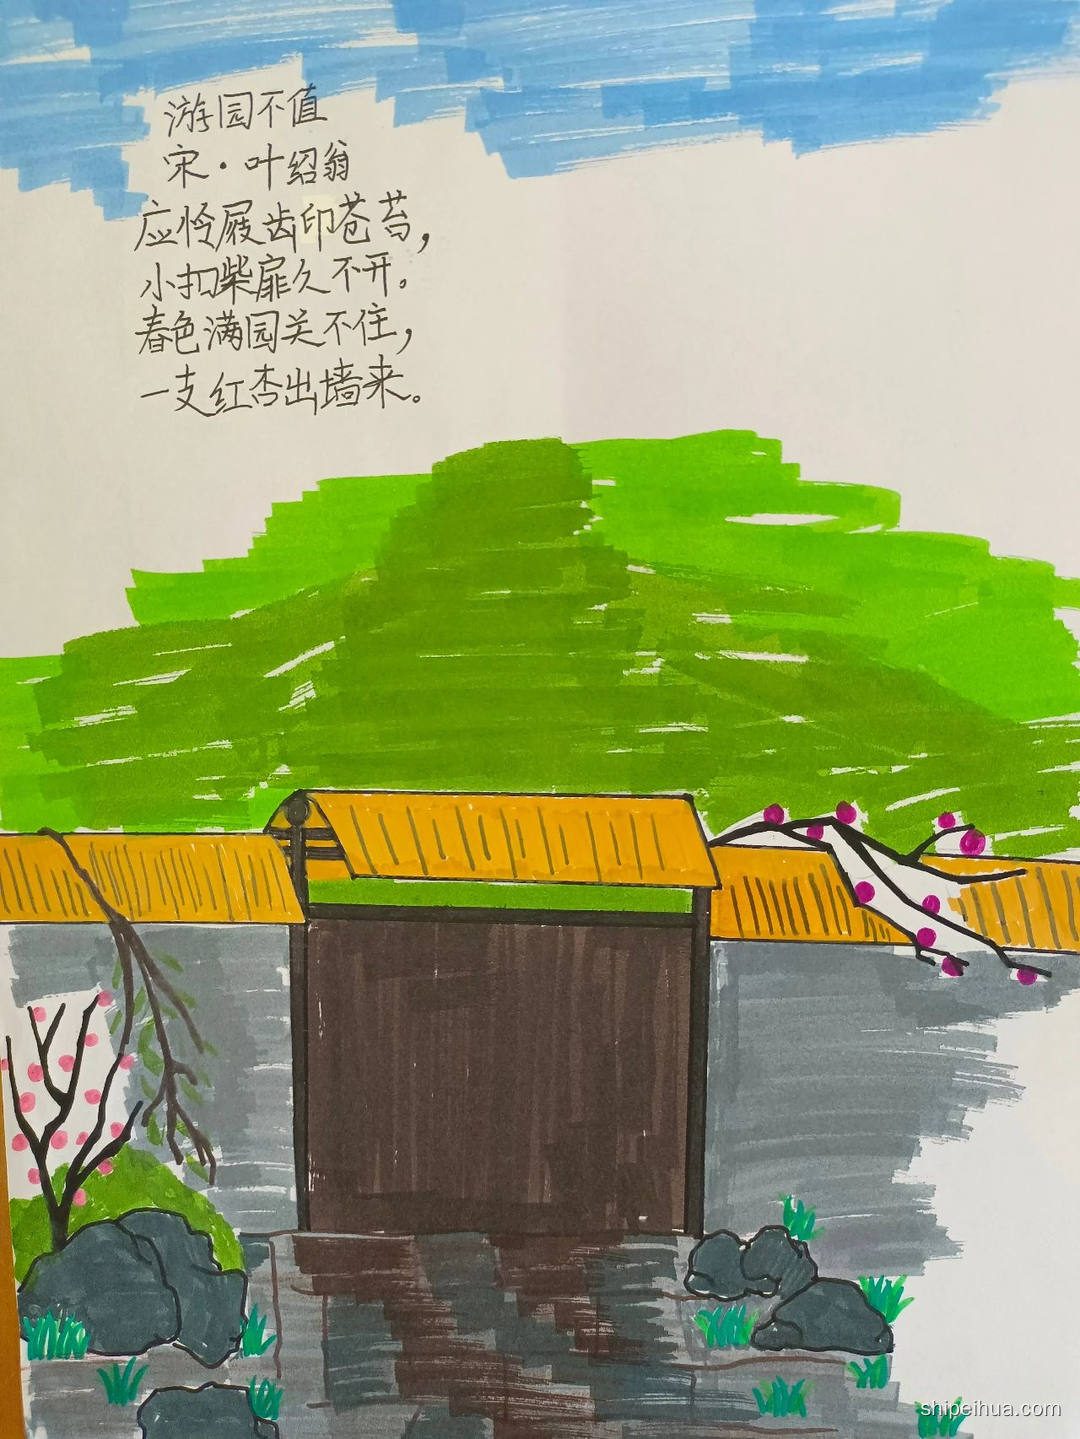 游园不值
宋·叶绍翁
应怜屐齿印苍苔，
小扣柴扉久不开。
春色满园关不住，
一支红杏出墙来。
shipeihua.com